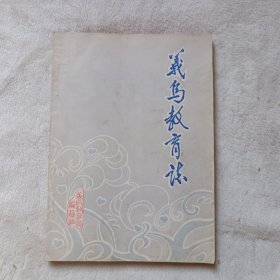 義烏教育誌